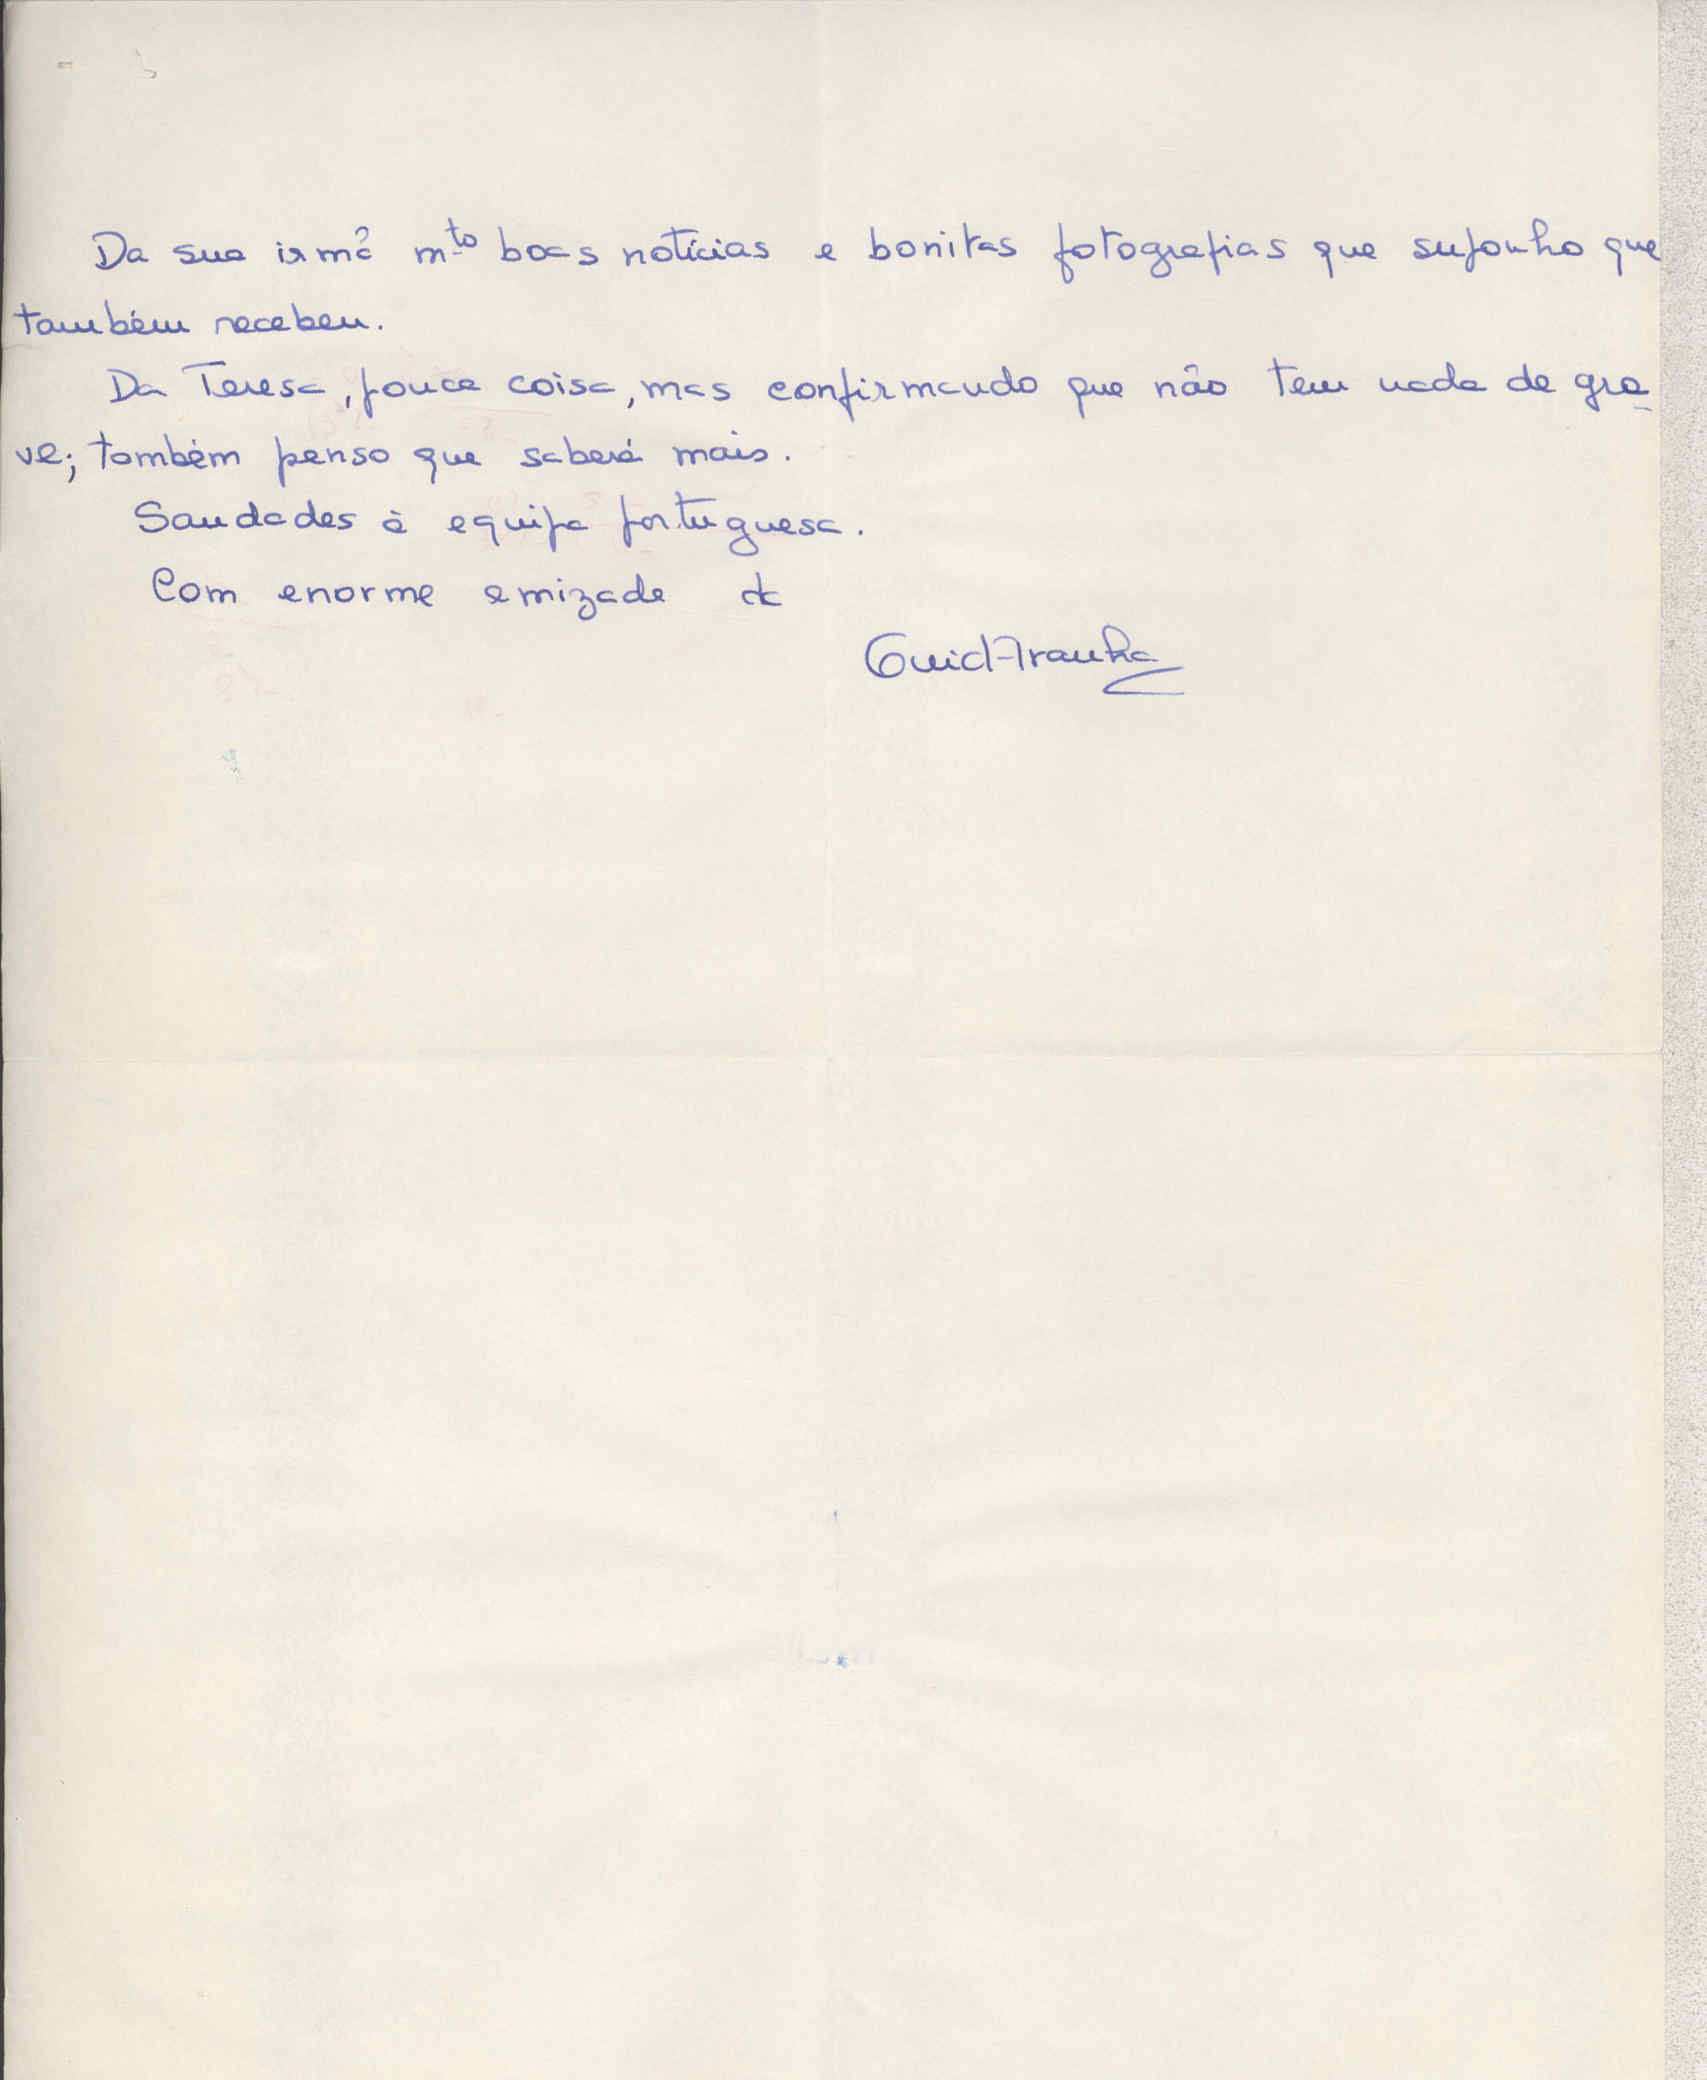 Da sua irmã mto boas notícias e bonitas fotografias que suponho que
também recebeu.
Da Teresa, pouca coisa, mas confirmando que não tem nada de gra-
ve; também penso que saberá mais.
Saudades à equipa portuguesa.
Com enorme amizade da
Guida Aranha